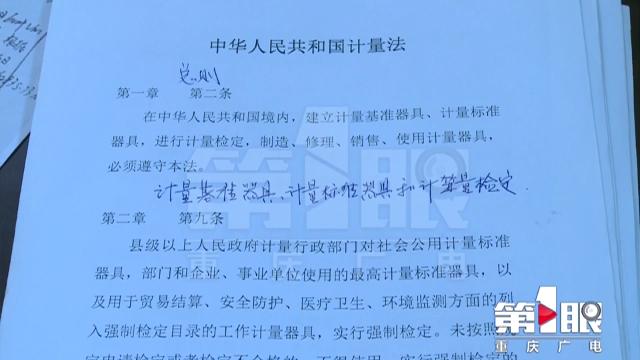 中华人民共和国计量法
总则
第一章 第二条
在中华人民共和国境内，建立计量基准器具、计量标准
器具，进行计量检定，制造、修理、销售、使用计量器具，
必须遵守本法。
计量基准器具、计量标准器具和计算量检定.
第二章 第九条
县级以上人民政府计量行政部门对社会公用计量标准
器具，部门和企业、事业单位使用的最高计量标准器具，以
及用于贸易结算、安全防护、医疗卫生、环境监测方面的列
入强制检定目录的工作计量器具，实行强制检定。未按照
定申请检定或者检定不合格的，不得使用。实行强制检定的
第1眼
重庆广电
第1眼
重庆广电